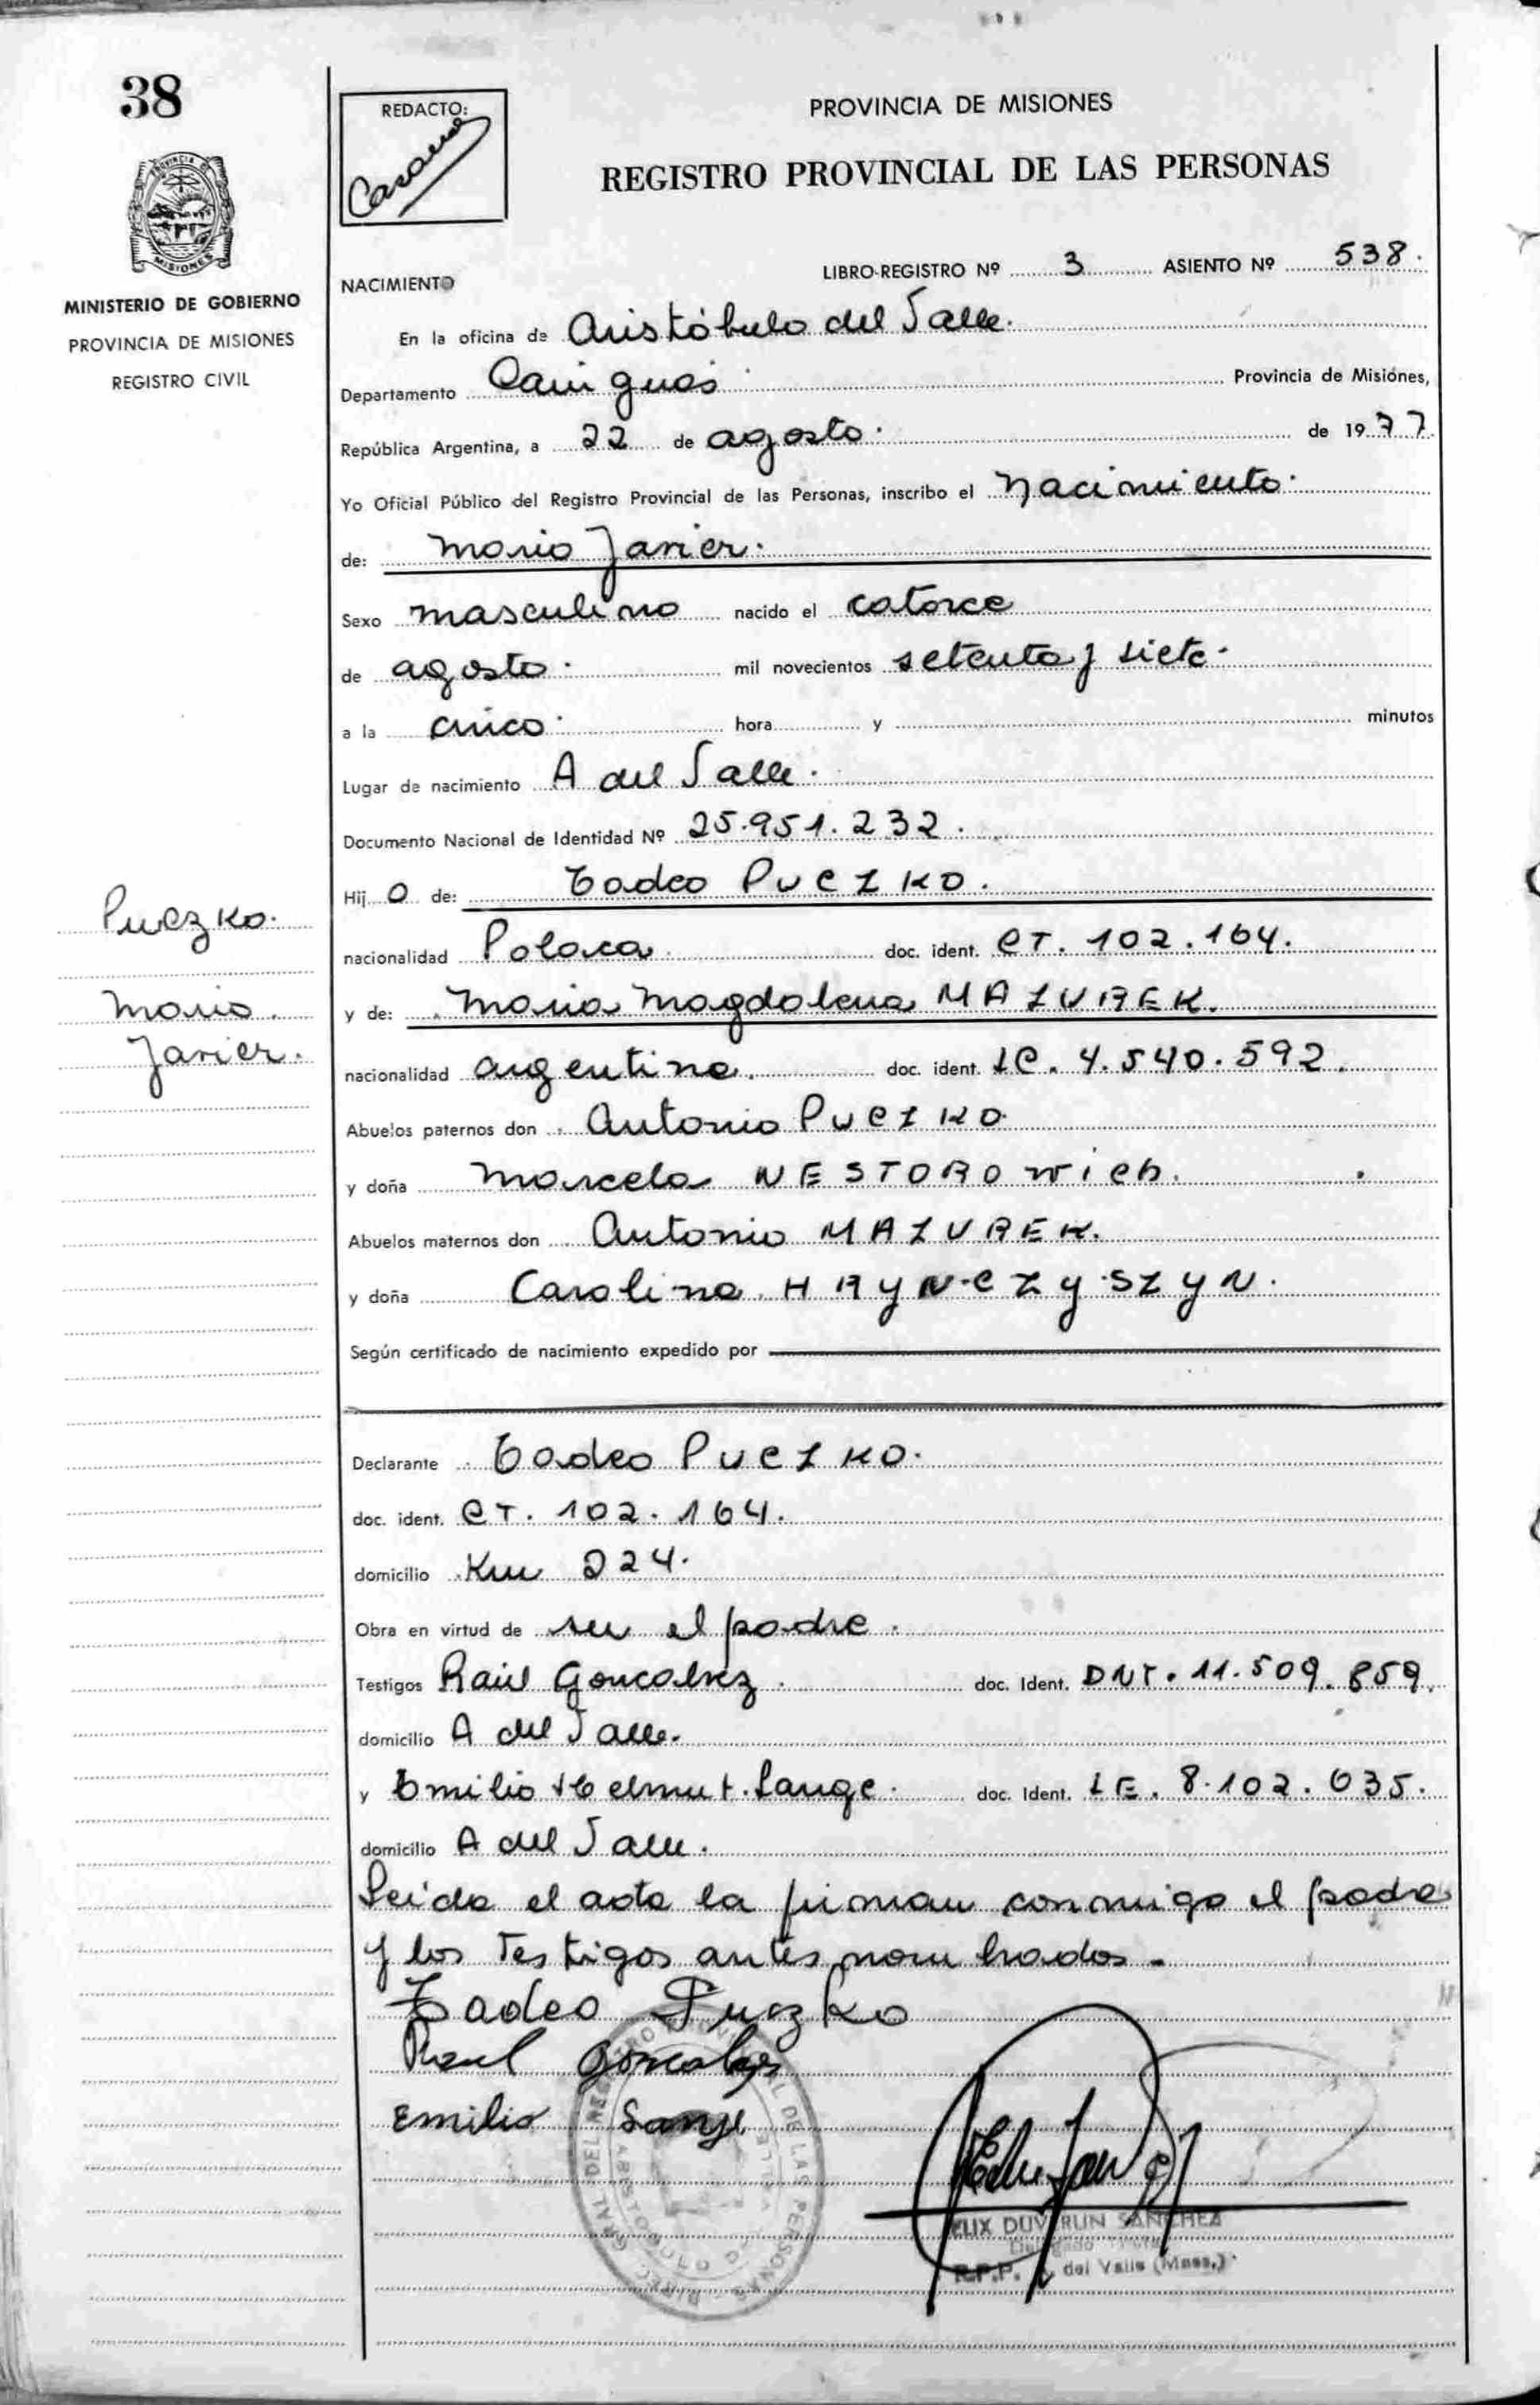 38
REDACTO:
PROVINCIA DE MISIONES
REGISTRO PROVINCIAL DE LAS PERSONAS
MISIONES
MINISTERIO DE GOBIERNO
PROVINCIA DE MISIONES
REGISTRO CIVIL
LIBRO-REGISTRO Nº 3 ASIENTO Nº 538.
NACIMIENTO
En la oficina de Aristóbulo del Valle.
Departamento Cainguas Provincia de Misiones,
República Argentina, a 22 de agosto. de 1977
Yo Oficial Público del Registro Provincial de las Personas, inscribo el Nacimiento.
de: Mario Javier.
Sexo masculino nacido el catorce
de agosto. mil novecientos setenta y siete.
a la cinco. hora y minutos
Lugar de nacimiento A del Valle.
Documento Nacional de Identidad Nº 25.951.232.
Hij o de: Tadeo PUCZKO.
nacionalidad Polaca. doc. ident. CT. 102.164.
y de: Maria Magdalena MAZUREK.
nacionalidad argentina. doc. ident. LC. 4.540.592.
Abuelos paternos don Antonio PUCZKO
y doña Marcela NESTOROWich.
Abuelos maternos don Antonio MAZUREK.
y doña Carolina HRYNCZYSZYN.
Según certificado de nacimiento expedido por
Puczko.
Mario.
Javier.
Declarante Tadeo PUCZKO.
doc. ident. CT. 102.164.
domicilio Km 224.
Obra en virtud de ser el padre.
Testigos Raúl Goncalvez. doc. Ident. DNI. 11.509.859.
domicilio A del Valle.
y Emilio Helmut Lange. doc. Ident. LE. 8.102.035.
domicilio A del Valle.
Leida el acta la firman conmigo el padre
y los Testigos antes nombrados.
Tadeo Puczko
Raul Goncalves
Emilio Lange
FELIX DUVERUN SANCHEZ
R.P.P. A. del Valle (Mnes.)